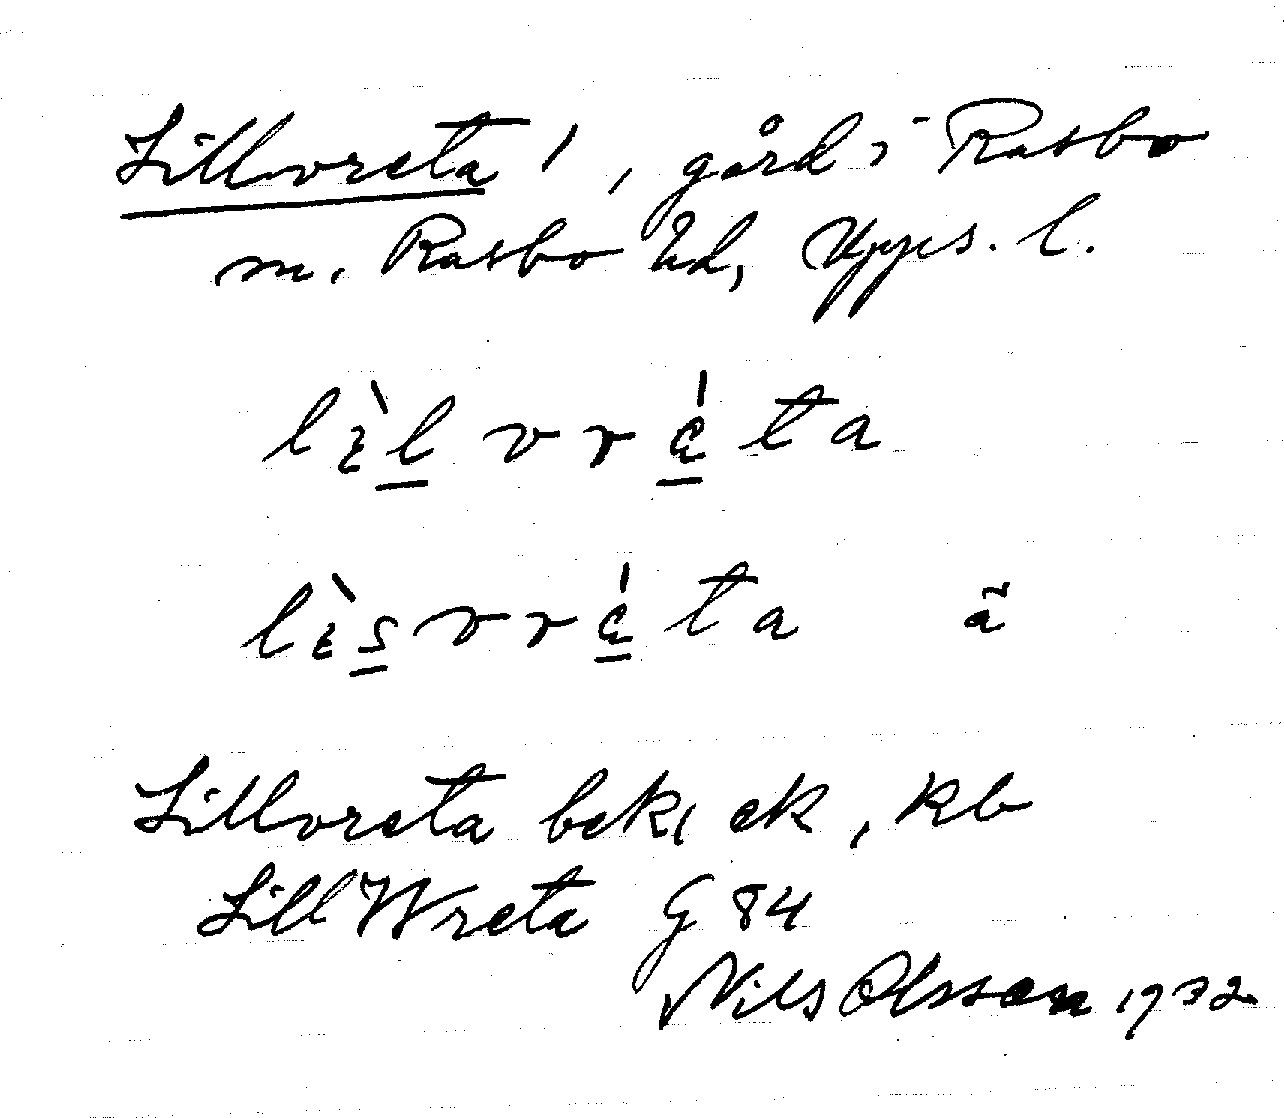 Lillvreta 1, gård i Rasbo
sn. Rasbo hd, Upps. l.
lìlvrǽta
lìsvrǽta ã
Lillvreta bck, ek, kb
Lill Wreta G 84
Nils Olsson 1932